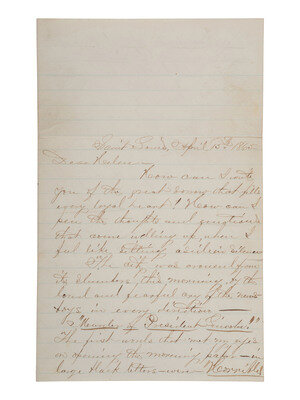 Saint Louis, April 15th 1865
Dear
How can I write
you of the great sorrow that fills
every loyal heart! How can I
pen the thoughts and questions
that come welling up, when I
feel like sitting silence
The city was aroused from
its slumbers this morning by the
loud and fearful cry of the news
boys in every direction
"Murder of President Lincoln!"
The first words that met my eyes
on opening the morning paper — in
large black letters — were